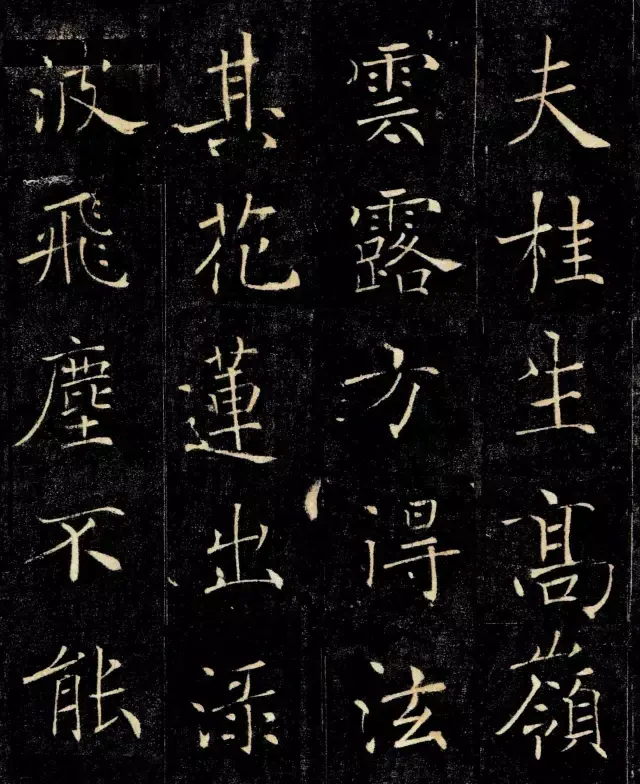 夫桂生高嶺
雲露方得泫
其花蓮出渌
波飛塵不能